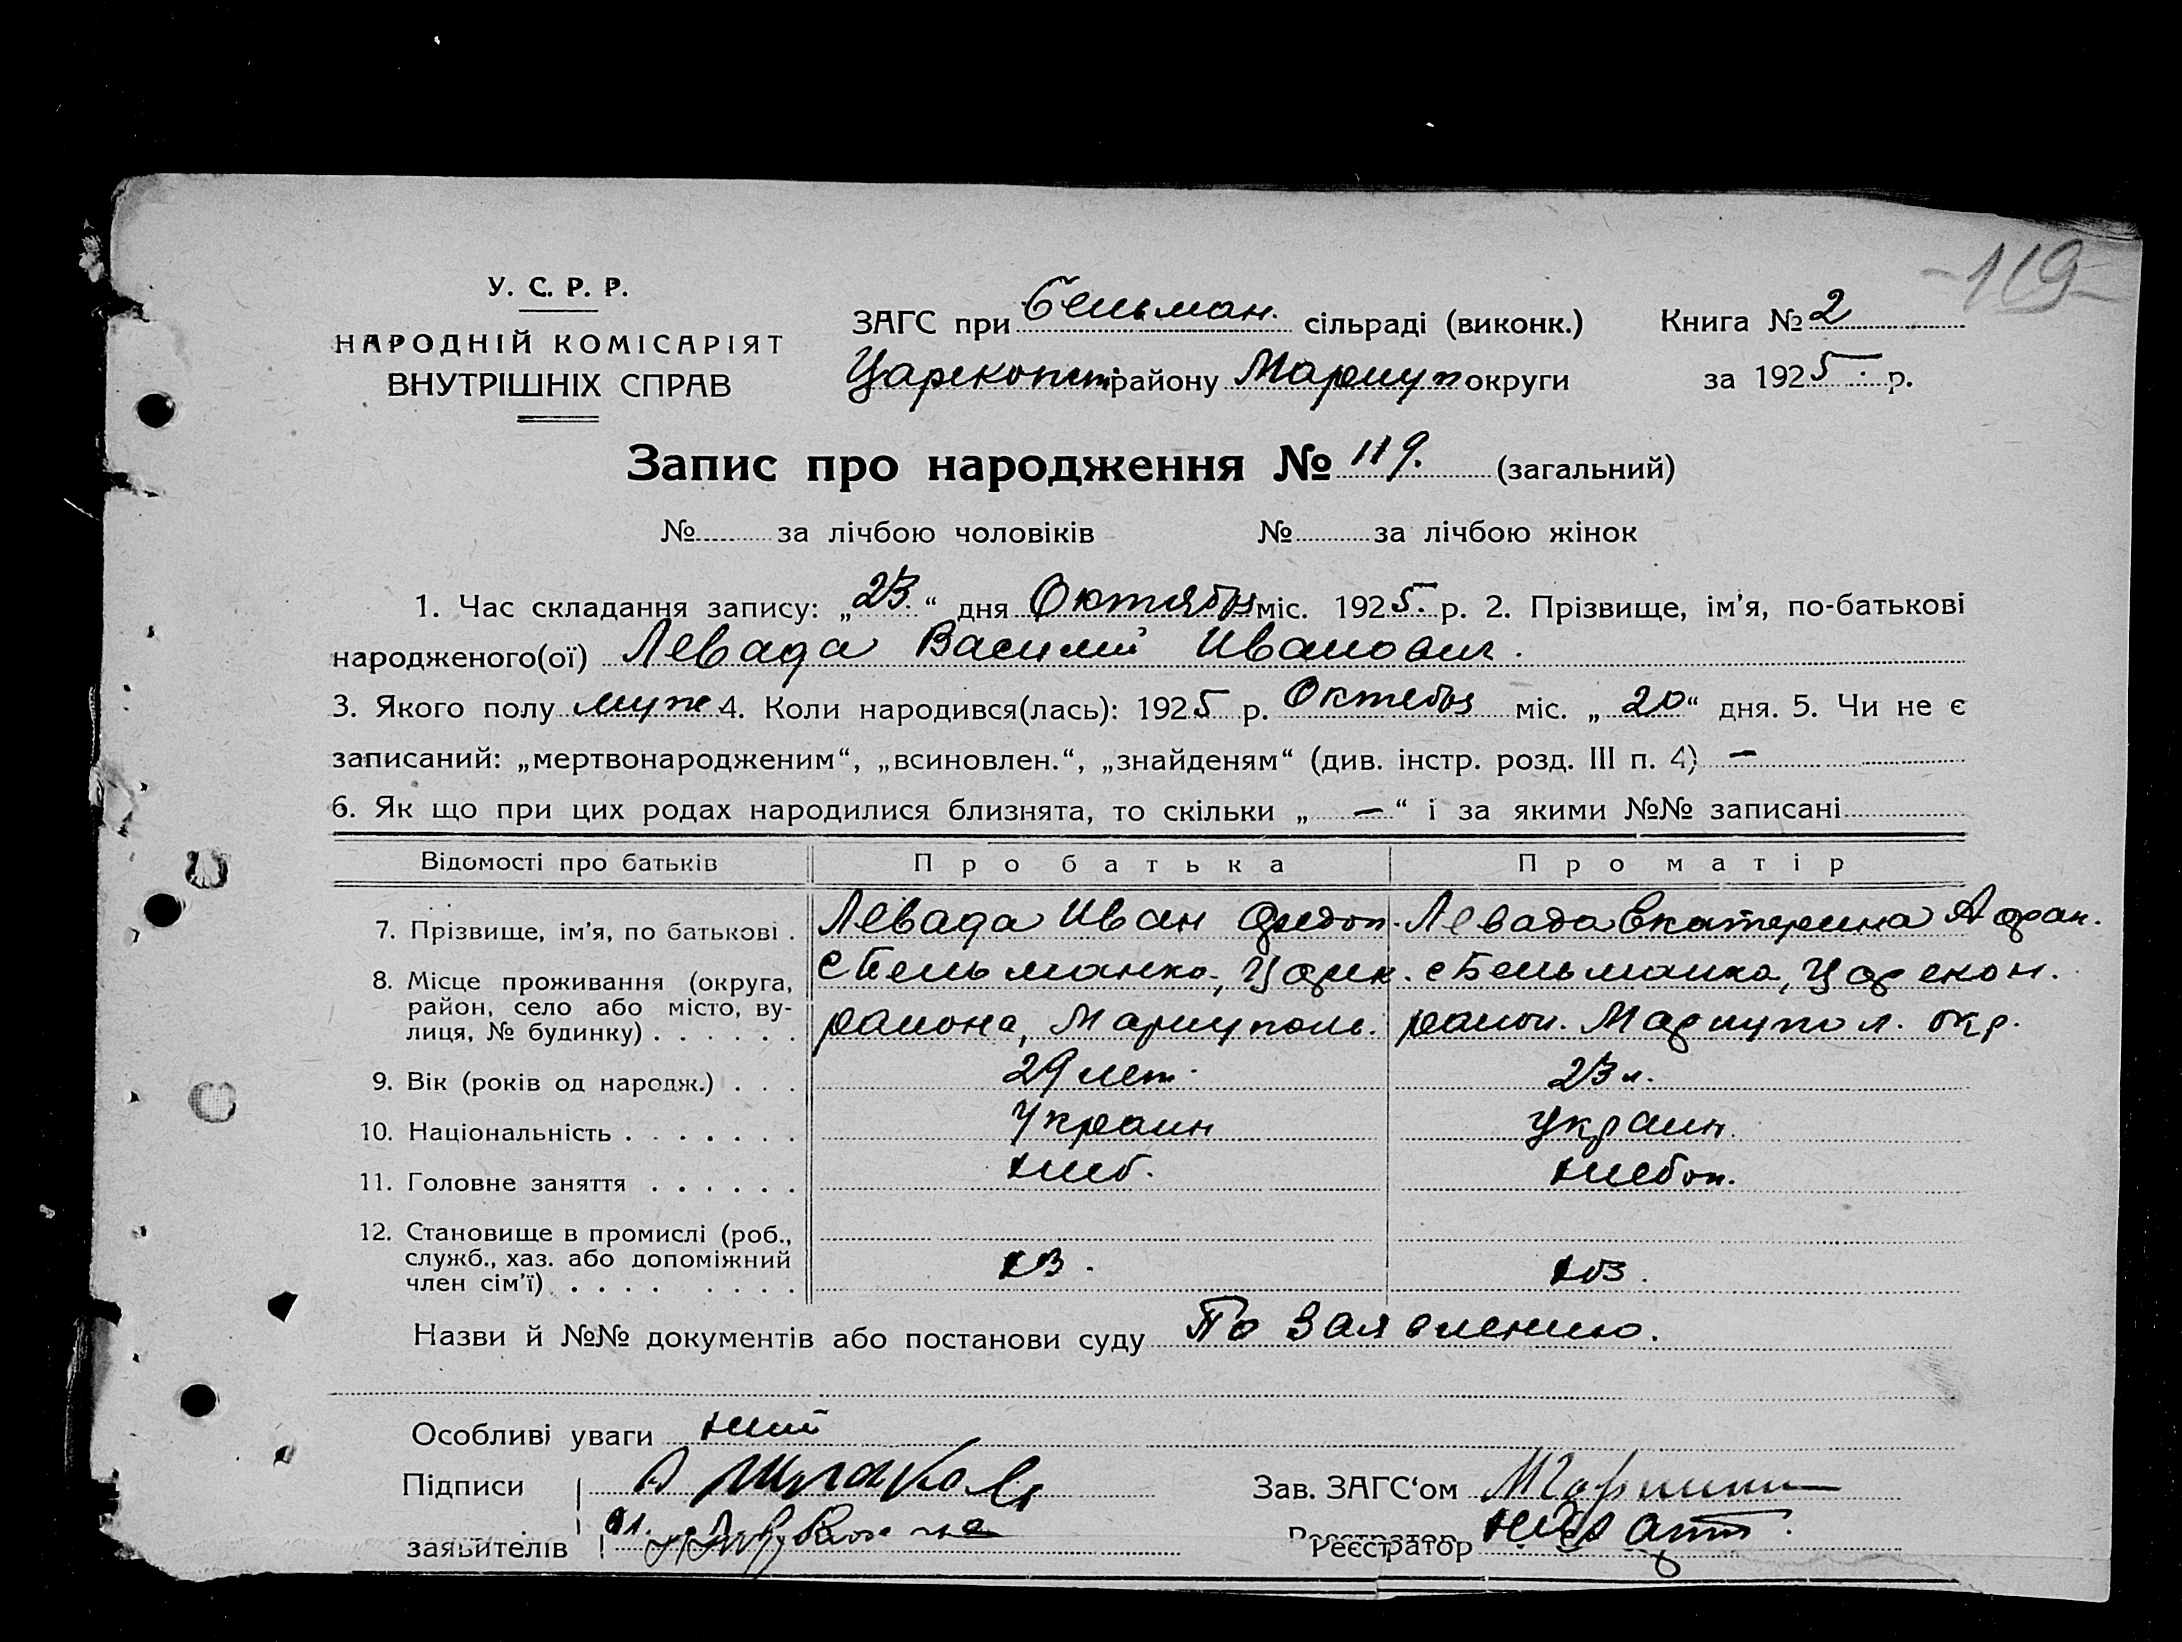 -119-
У. С. Р. Р.
НАРОДНІЙ КОМІСАРІЯТ
ВНУТРІШНІХ СПРАВ
ЗАГС при Бельман. сільраді (виконк.) Книга № 2
Царекопст району Мариуп округи за 1925 р.
Запис про народження № 119. (загальний)
№ за лічбою чоловіків № за лічбою жінок
1. Час складання запису: „23“ дня Октября міс. 1925. р. 2. Прізвище, ім'я, по-батькові
народженого(ої) Левада Василий Иванович.
3. Якого полу муж 4. Коли народився(лась): 1925 р. Октебря міс. „20“ дня. 5. Чи не є
записаний: „мертвонародженим“, „всиновлен.“, „знайденям“ (див. інстр. розд. III п. 4) —
6. Як що при цих родах народилися близнята, то скільки „—“ і за якими №№ записані
Відомості про батьків Про батька Про матір
7. Прізвище, ім'я, по батькові . Левада Иван Федоп. Левада Екатерина Афан.
8. Місце проживання (округа, с Бельманка, Царек. с Бельманка, Царекон.
район, село або місто, ву-
лиця, № будинку) . . . . . . района, Мариуполь. район. Мариупол. окр.
9. Вік (років од народж.) . . . 29 лет. 23 л.
10. Національність . . . . . . . Украин Украин.
11. Головне заняття . . . . . . хлеб. хлебоп.
12. Становище в промислі (роб.,
служб., хаз. або допоміжний
член сім'ї) . . . . . . . . хоз. хоз.
Назви й №№ документів або постанови суду По заявлению.
Особливі уваги
Підписи Зав. ЗАГС'ом
заявителів Реєстратор